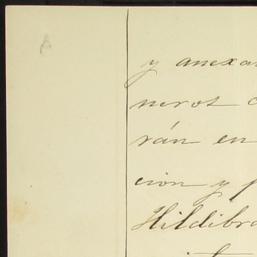 y anexa
nerot
rán en
cion y
Hildibra